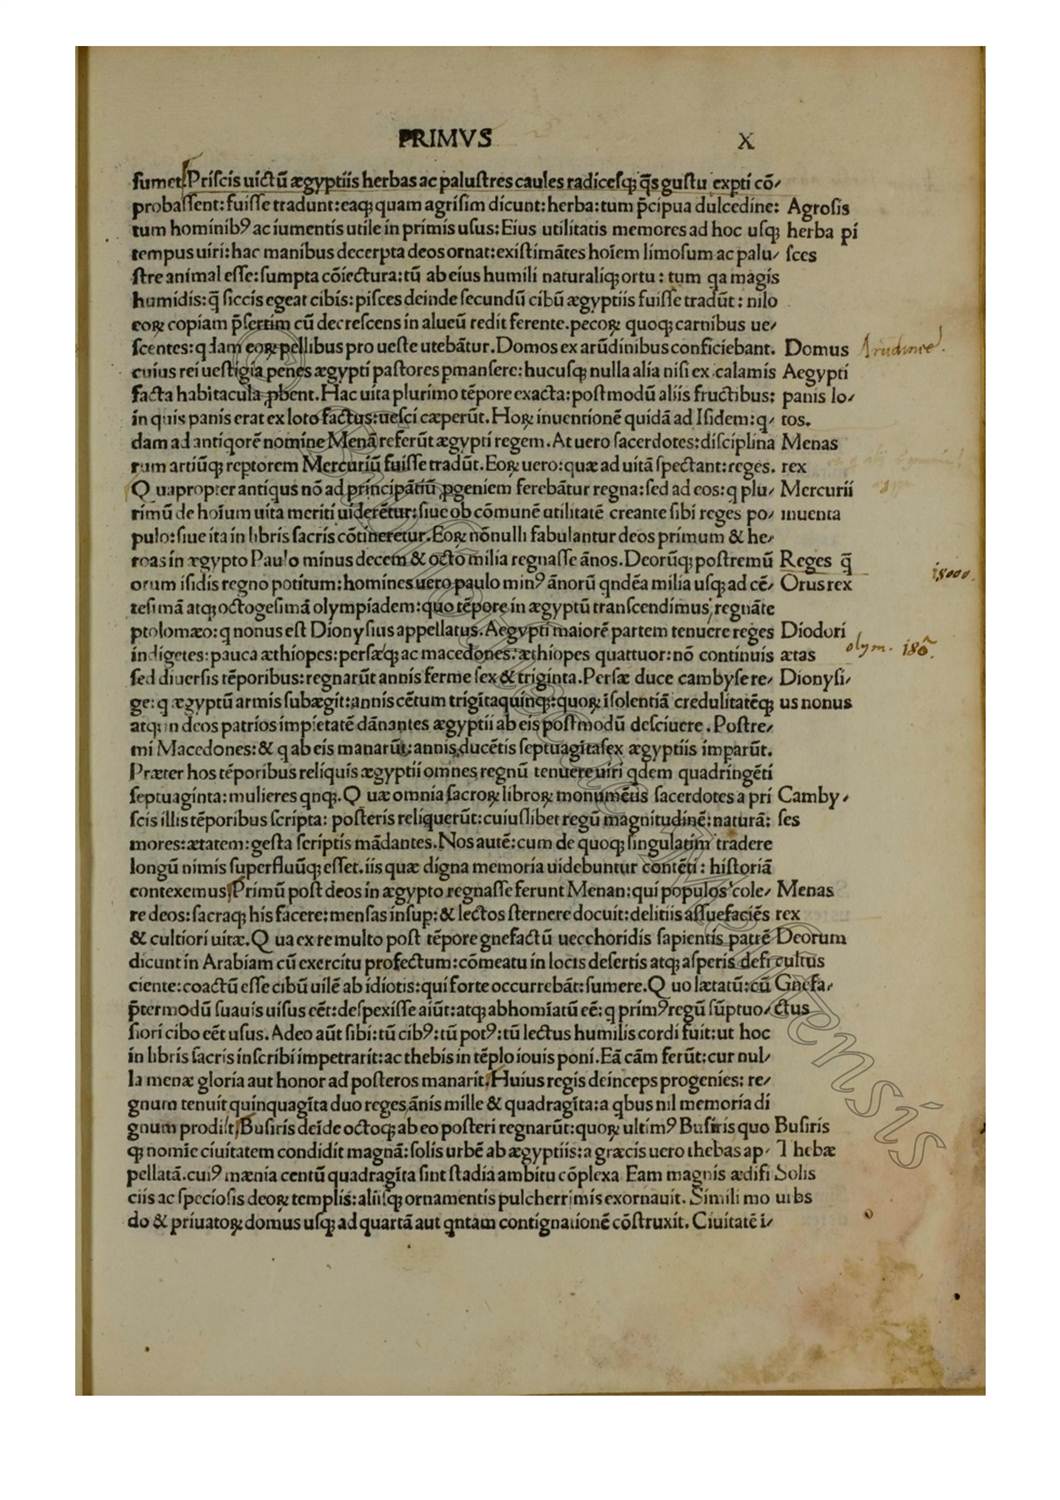 PRIMVS X
sumet. Priscis uictū ægyptiis herbas ac palustres caules radicesqꝫ q̄s gustu expti cō/
probassent: fuisse tradunt: eaqꝫ quam agrisim dicunt: herba: tum p̄cipua dulcedine: Agrosis
tum hominibꝰ ac iumentis utile in primis usus: Eius utilitatis memores ad hoc usqꝫ herba pi
tempus uiri: hac manibus decerpta deos ornāt: existimātes hoīem limosum ac palu/ sces
stre animal esse: sumpta cōiectura: tū ab eius humili naturaliqꝫ ortu: tum qa magis
humidis: q̄ siccis egeat cibis: pisces deinde secundū cibū ægyptiis fuisse tradūt: nilo
eoꝝ copiam p̄sertim cū decrescens in alueū redit ferente. pecoꝝ quoqꝫ carnibus ue/
scentes: qdam eoꝝ pellibus pro ueste utebātur. Domos ex arūdinibus conficiebant. Domus
cuius rei uestigia penes ægypti pastores pmansere: hucusqꝫ nulla alia nisi ex calamis Aegypti
facta habitacula ꝓbent. Hac uita plurimo tēpore exacta: postmodū aliis fructibus: panis lo/
in quis panis erat ex loto factus: uesci cæperūt. Hoꝝ inuentionē quidā ad Isidem: q/ tos.
dam ad antiqorē nomine Menā referūt ægypti regem. At uero sacerdotes: disciplina Menas
rum artiūqꝫ reptorem Mercuriū fuisse tradūt. Eoꝝ uero: quæ ad uitā spectant: reges. rex
Quapropter antiqus nō ad principātiū ꝓgeniem ferebātur regna: sed ad eos: q plu/ Mercurii
rimū de hoīum uita meriti uiderētur: siue ob cōmunē utilitatē creante sibi reges po/ inuenta
pulo: siue ita in libris sacris cōtineretur. Eoꝝ nōnulli fabulantur deos primum & he/
roas in ægypto Paulo minus decem & octo milia regnasse ānos. Deorūqꝫ postremū Reges q̄
orum isidis regno potitum: homines uero paulo minꝰ ānorū qndēa milia usqꝫ ad cē/ Orus rex
tesimā atqꝫ octogesimā olympiadem: quo tēpore in ægyptū transcendimus, regnāte
ptolomæo: q nonus est Dionysius appellatus. Aegypti maiorē partem tenuere reges Diodori
indigetes: pauca æthiopes: persæqꝫ ac macedones: æthiopes quattuor: nō continuis ætas
sed diuersis tēporibus: regnarūt annis ferme sex & triginta. Persæ duce cambyse re/ Dionysi/
ge: q ægyptū armis subægit: annis cētum trigītaquinqꝫ: quoꝝ īsolentiā credulitatēqꝫ us nonus
atqꝫ in deos patrios impietatē dānantes ægyptii ab eis postmodū desciuere. Postre/
mi Macedones: & q ab eis manarūt: annis ducētis septuagītasex ægyptiis imparūt.
Præter hos tēporibus reliquis ægyptii omnes regnū tenuere uiri qdem quadringēti
septuaginta: mulieres qnqꝫ. Quæ omnia sacroꝝ libroꝝ monumētis sacerdotes a pri Camby/
scis illis tēporibus scripta: posteris reliquerūt: cuiuslibet regū magnitudinē: naturā: ses
mores: ætatem: gesta scriptis mādantes. Nos autē: cum de quoqꝫ singulatim tradere
longū nimis superfluūqꝫ esset. iis quæ digna memoria uidebuntur contēti: historiā
contexemus. Primū post deos in ægypto regnasse ferunt Menan: qui populos cole/ Menas
re deos: sacraqꝫ his facere: mensas insup: & lectos sternere docuit: delitiis assuefaciēs rex
& cultiori uitæ. Qua ex re multo post tēpore gnefactū uecchoridis sapientis patrē Deorum
dicunt in Arabiam cū exercitu profectum: cōmeatu in locis desertis atqꝫ asperis defi cultus
ciente: coactū esse cibū uilē ab idiotis: qui forte occurrebāt: sumere. Quo lætatū: cū Gnefa/
p̄termodū suauis uisus eēt: despexisse aiūt: atqꝫ abhomīatū eē: q primꝰ regū sūptuo/ ctus
siori cibo eēt usus. Adeo aūt sibi: tū cibꝰ: tū potꝰ: tū lectus humilis cordi fuit: ut hoc
in libris sacris inscribi impetrarit: ac thebis in tēplo iouis poni. Eā cām ferūt: cur nul/
la menæ gloria aut honor ad posteros manarit. Huius regis deinceps progenies: re/
gnum tenuit quinquagīta duo reges ānis mille & quadragīta: a qbus nil memoria di
gnum prodiit. Busiris deīde octoqꝫ ab eo posteri regnarūt: quoꝝ ultimꝰ Busiris quo Busiris
qꝫ nomīe ciuitatem condidit magnā: solis urbē ab ægyptiis: a græcis uero thebas ap/ Thebæ
pellatā. cuiꝰ mænia centū quadragīta sint stadia ambitu cōplexa. Eam magnis ædifi Solis
ciis ac speciosis deoꝝ templis: aliisqꝫ ornamentis pulcherrimis exornauit. Simili mo urbs
do & priuatoꝝ domus usqꝫ ad quartā aut qntam contignationē cōstruxit. Ciuitatē i/
18000.
olym. 180.